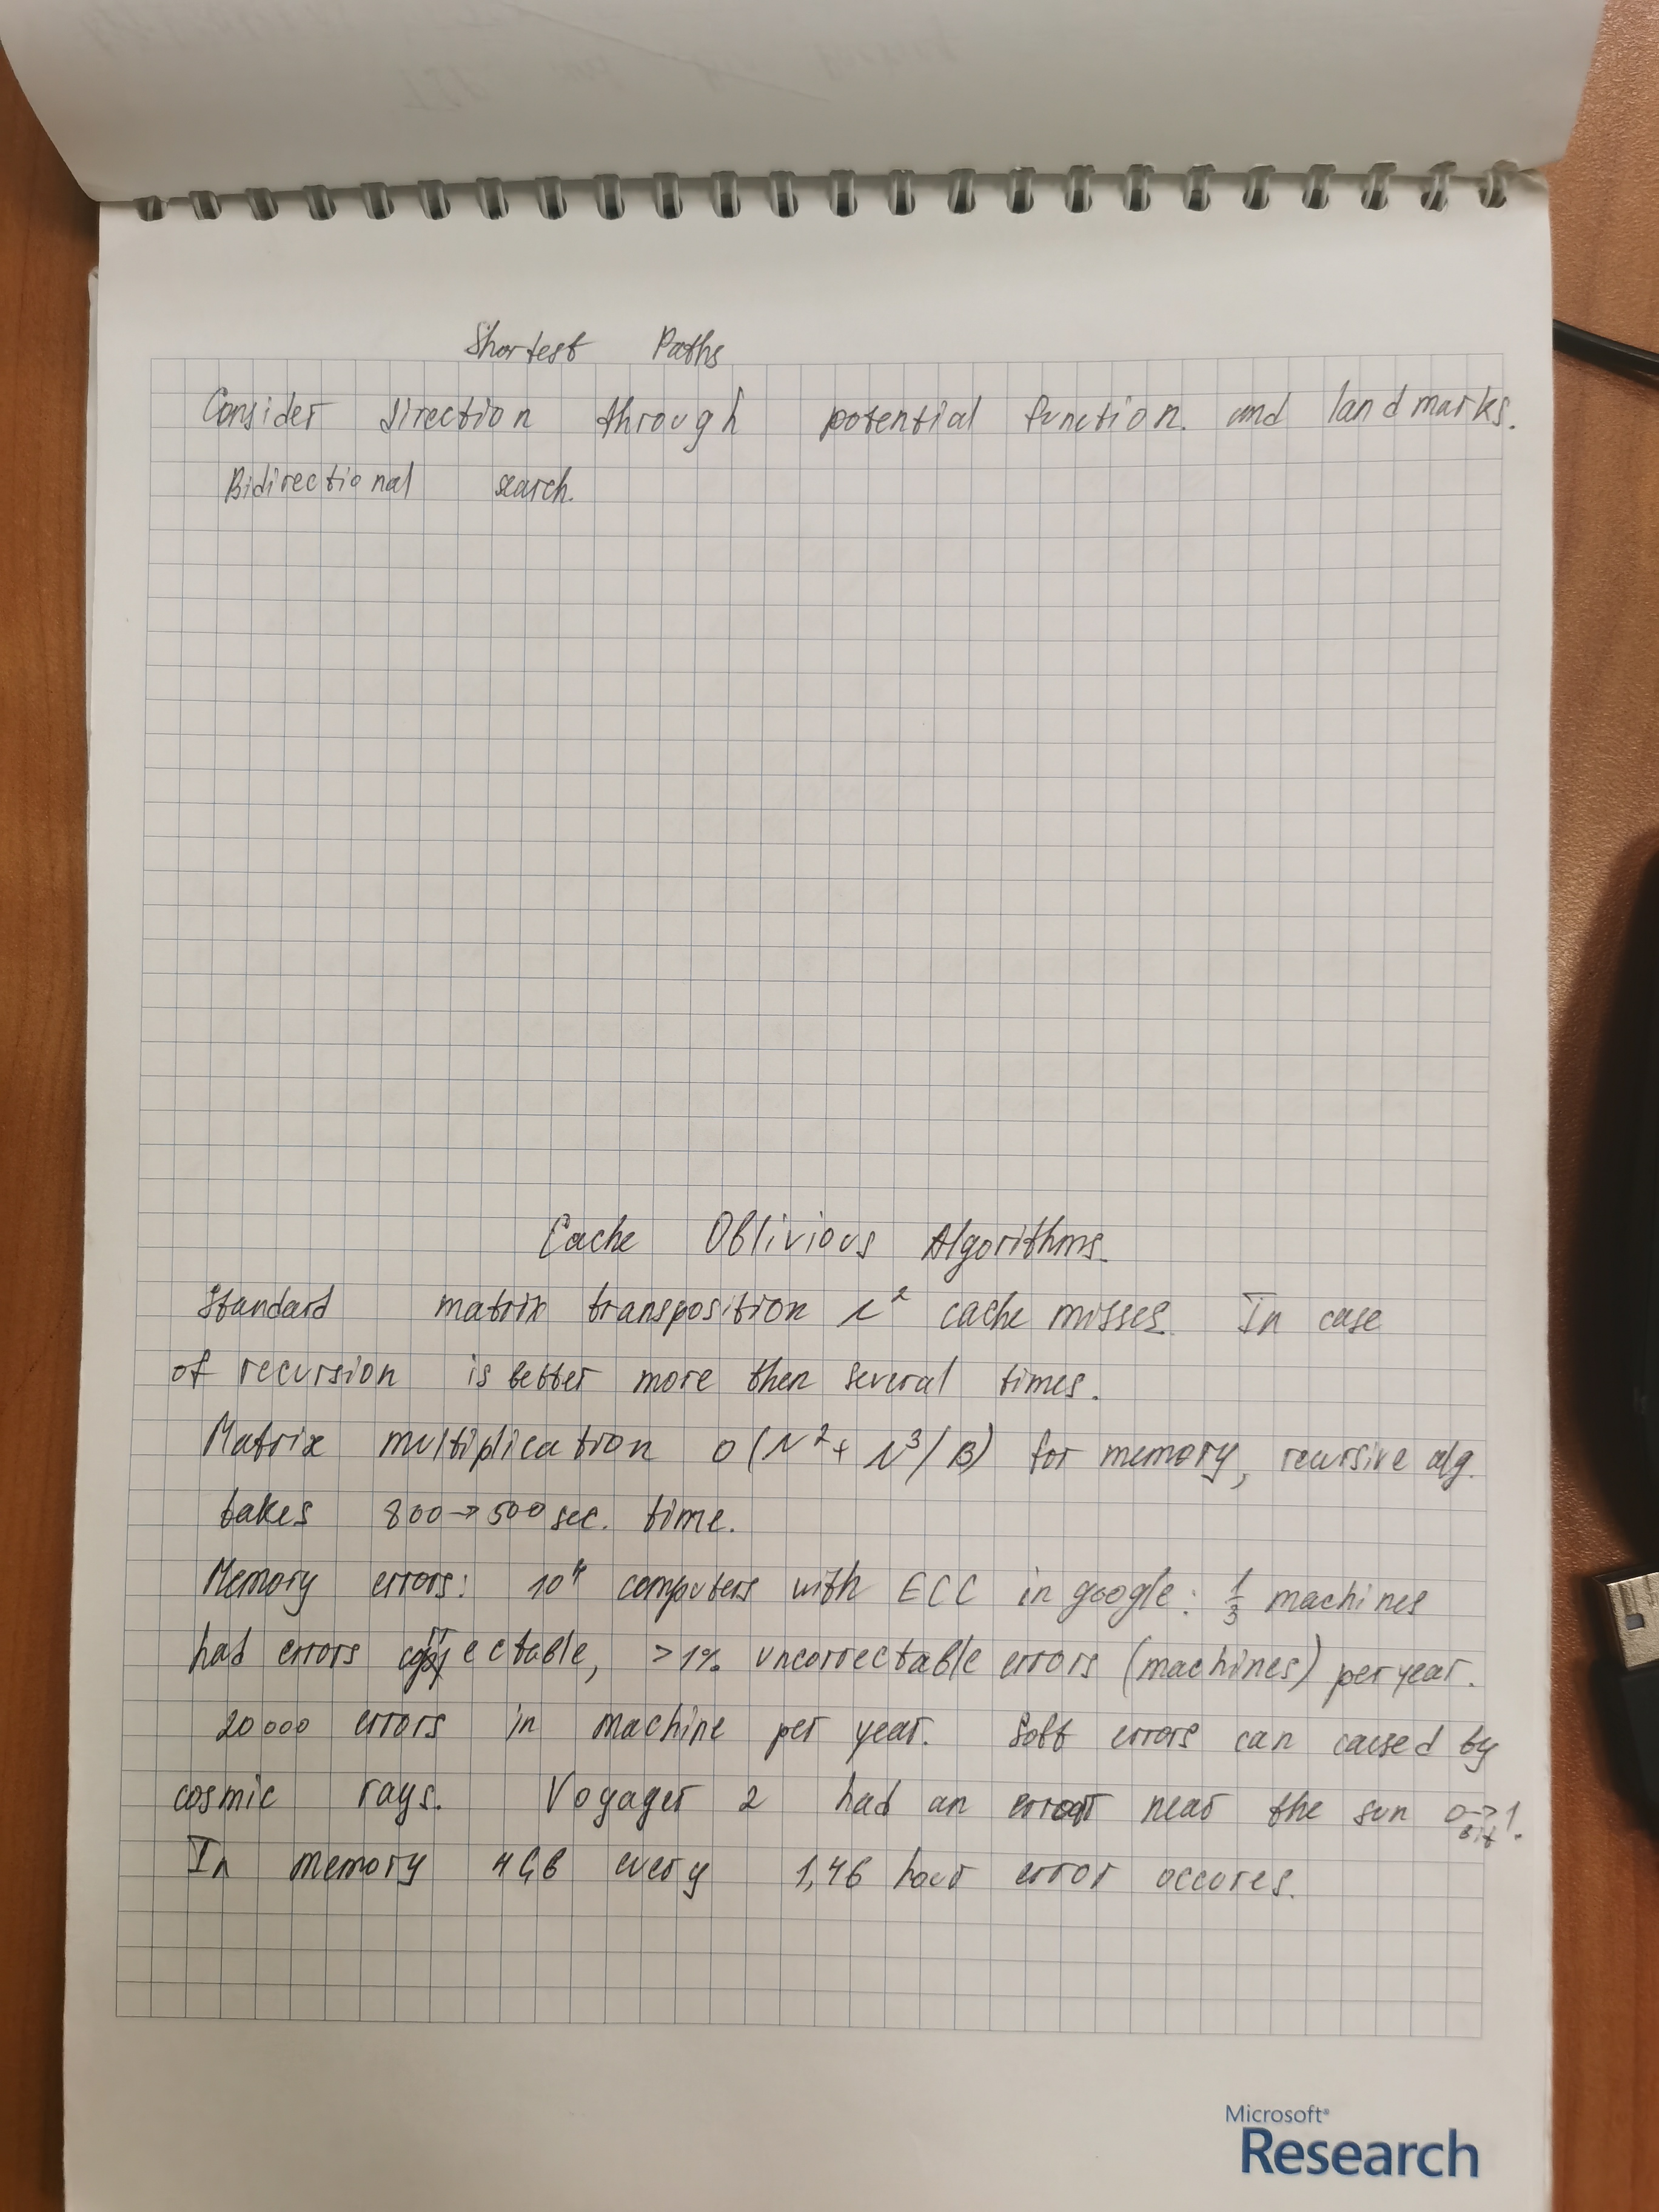 Shortest Paths
Consider direction through potential function. and landmarks.
Bidirectional search.
Cache Oblivious Algorithms.
Standard matrix transposition N² cache misses. In case
of recursion is better more then several times.
Matrix multiplication O(N²+ N³/B) for memory, recursive alg.
takes 800→500 sec. time.
Memory errors: 10⁴ computers with ECC in google: 1/3 machines
had errors correctable, >1% uncorrectable errors (machines) per year.
20000 errors in machine per year. Soft errors can caused by
cosmic rays. Voyager 2 had an error near the sun 0->1.
Bit
In memory 4GB every 1,46 hour error occures.
Microsoft®
Research